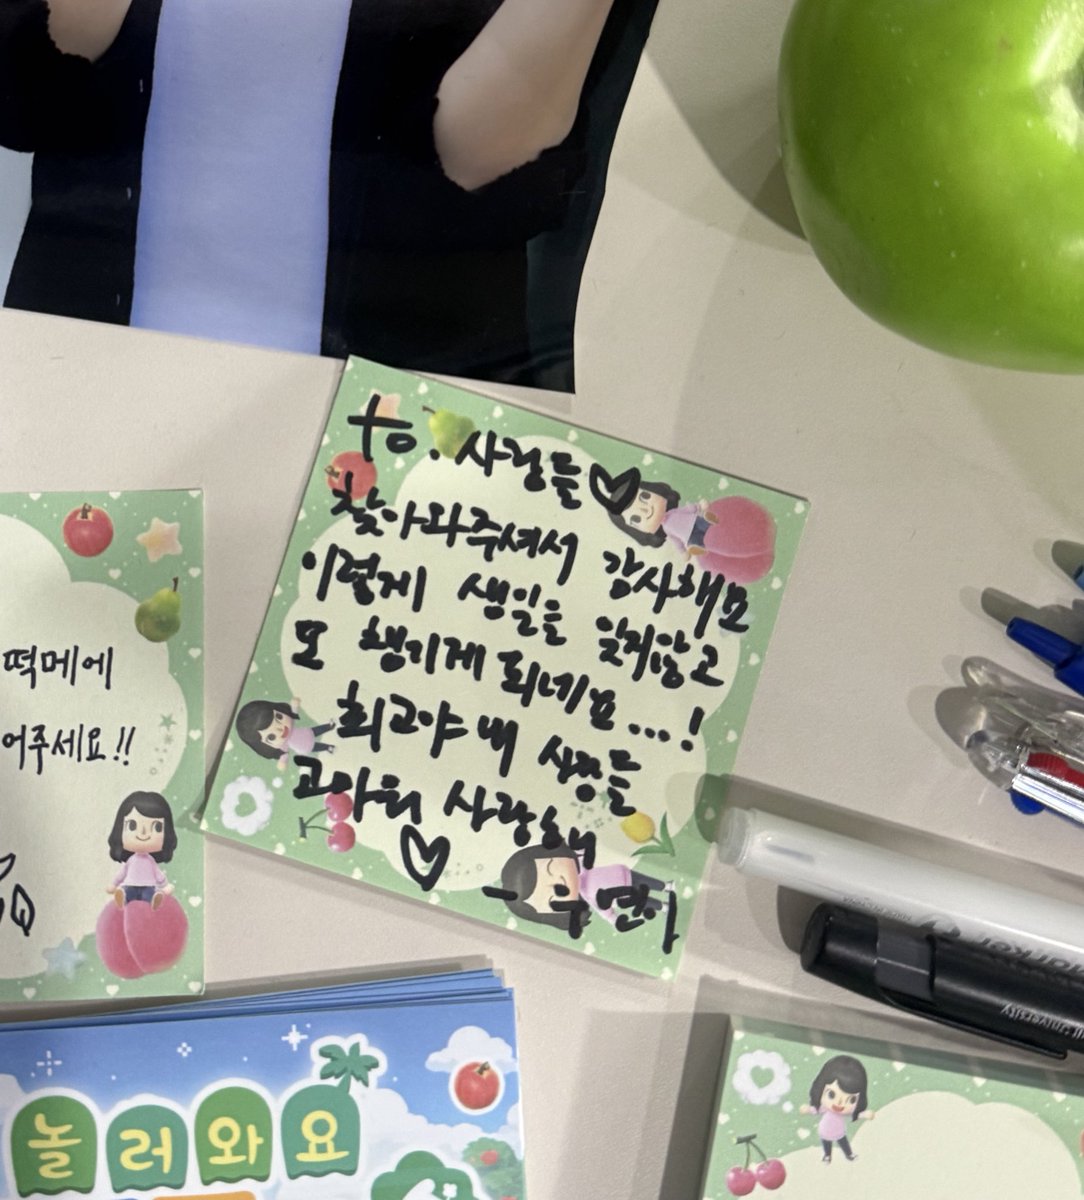 to. 사랑들♡
찾아와주셔서 감사해요
이렇게 생일을 잊지않고
또 챙기게 되네요...!
최고야 내 사랑들
고마워 사랑해
♡
떡메에
어주세요!!
놀러와요